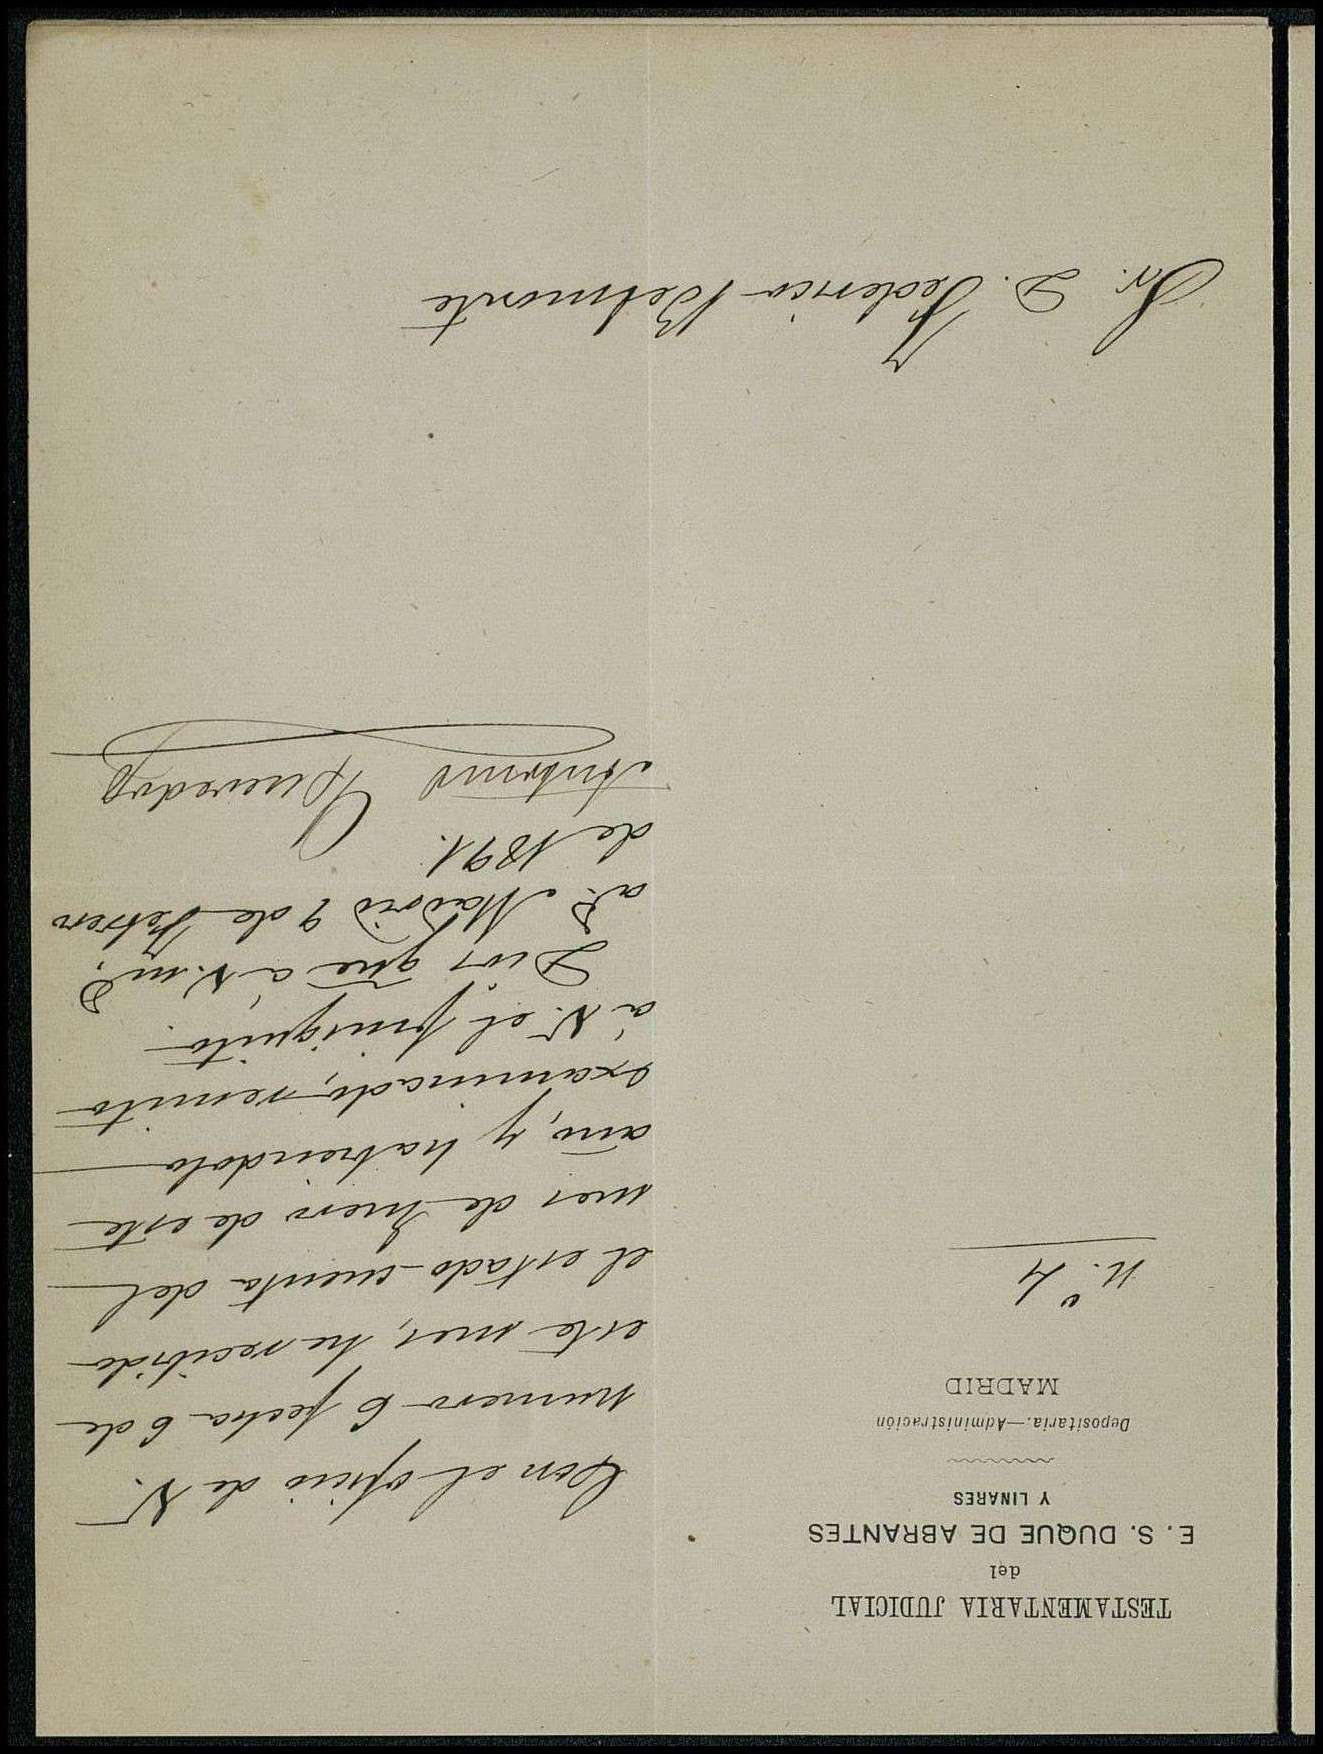 TESTAMENTARIA JUDICIAL
del
E. S. DUQUE DE ABRANTES
Y LINARES
Depositaria.—Administración
MADRID
n.º 4
Con el oficio de V.
numero 6 fecha 6 de
este mes, he recibido
el estado-cuenta del
mes de Enero de este
año, y habiendolo
examinado, remito
á V. el finiquito.
Dios gue á V. m.s
a.s Madrid 9 de Febrero
de 1891.
Antonio Quevedo
Sr. D. Federico Belmonte